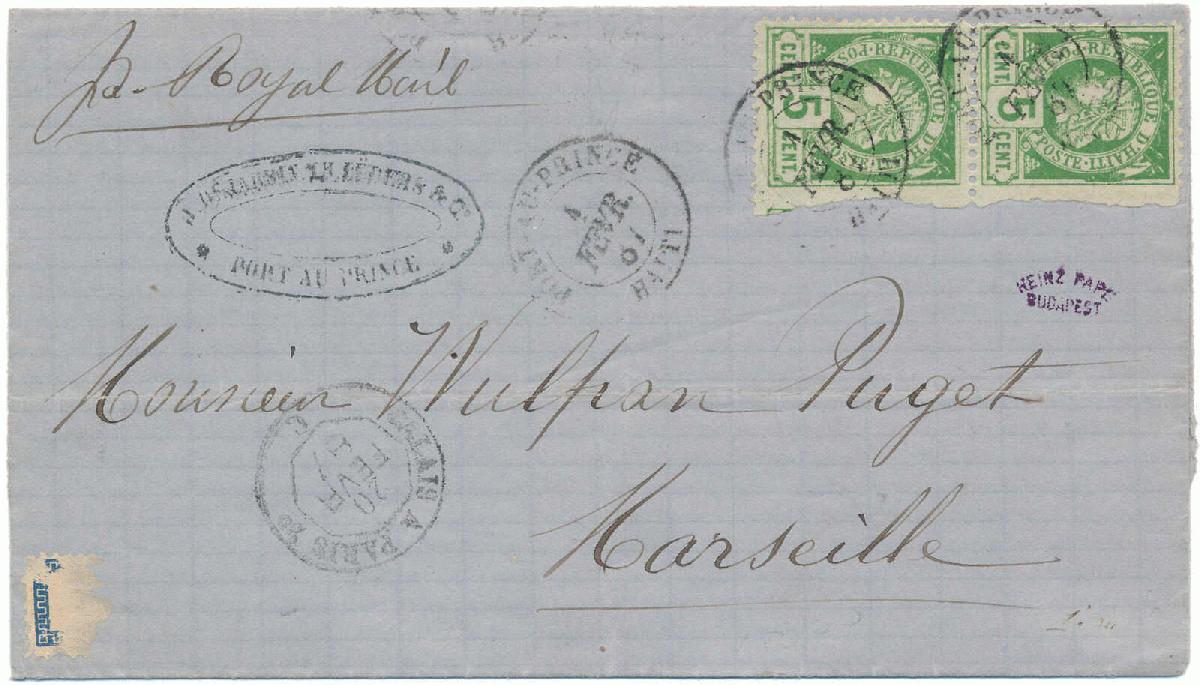 pr. Royal Mail
POSTE · REPUBLIQUE D'HAITI
5
CENT.
CENT.
POSTE · REPUBLIQUE D'HAITI
5
CENT.
CENT.
PRINCE
1
FEVR.
HAITI
& Co
PORT AU PRINCE
PORT-AU-PRINCE
1
FEVR.
HAITI
HEINZ PAPE
BUDAPEST
Monsieur Wulfran Puget
CALAIS A PARIS
20
FEVR
Marseille